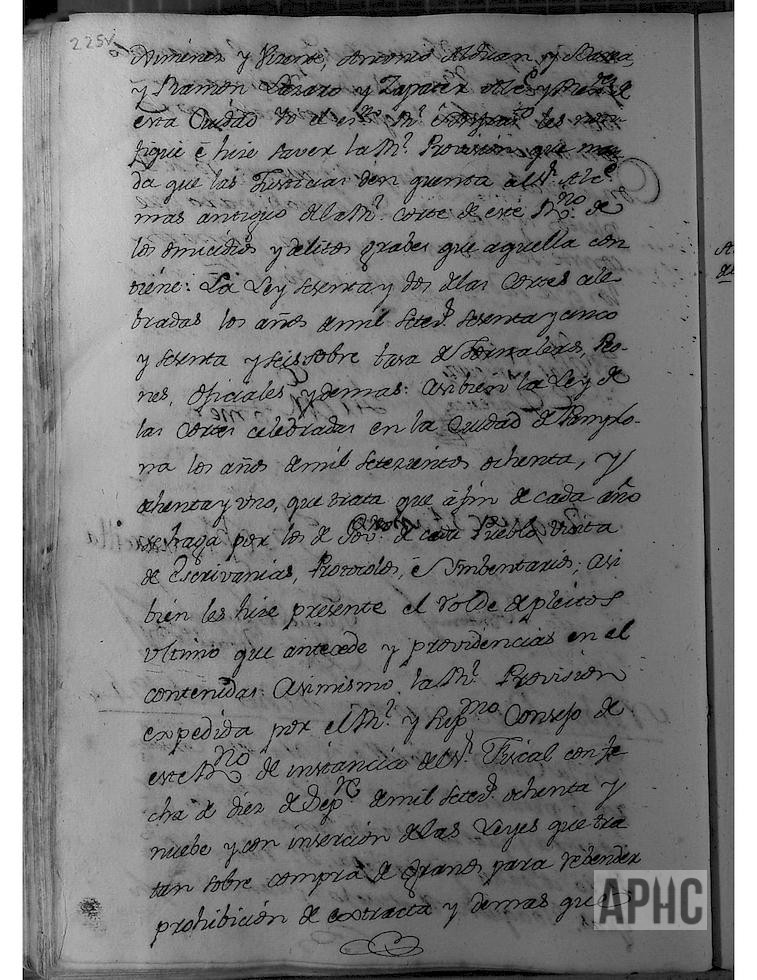 225v
Ximenez y Vicente, Antonio Aldian y
y Ramon Lazaro y Zapater Alc.s y
esta Ciudad Yo el es.no R.l les noti
fique è hize saver la R.l Provision que man
da que las Justicias den quenta al S.r Alc.e
mas antiguo de la R.l Corte de este R.no de
los omicidios y delitos grabes que aquella con
tiene: La Ley sesenta y dos de las Cortes cele
bradas los años de mil Setez.s sesenta y cinco
y sesenta y seis sobre tasa de Jornaleros, Peo-
nes, oficiales y demas: Asi bien la Ley de
las Cortes celebradas en la Ciudad de Pamplo-
na los años de mil Setezientos ochenta, y
ochenta y uno, que trata que à fin de cada año
se haga por los de Gov.no de cada Pueblo Visita
de Escrivanias, Protocolos, è Ymbentarios; Asi
bien les hize presente el Rolde de pleitos
ultimo que antecede y providencias en el
contenidas: Asimismo la R.l Provision
expedida por el R.l y Sup.mo Consejo de
este R.no de instancia del S.r Fiscal con fe
cha de diez de Sep.re de mil Setez.s ochenta y
nuebe y con insercion de las Leyes que tra
tan sobre compra de granos para rebender
prohibicion de extracta y demas que
APHC